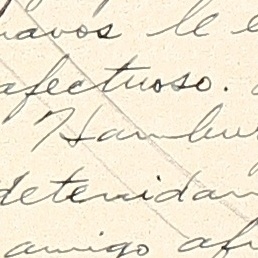 avos le e
afectuoso.
Hambur
detenidam
amigo afm